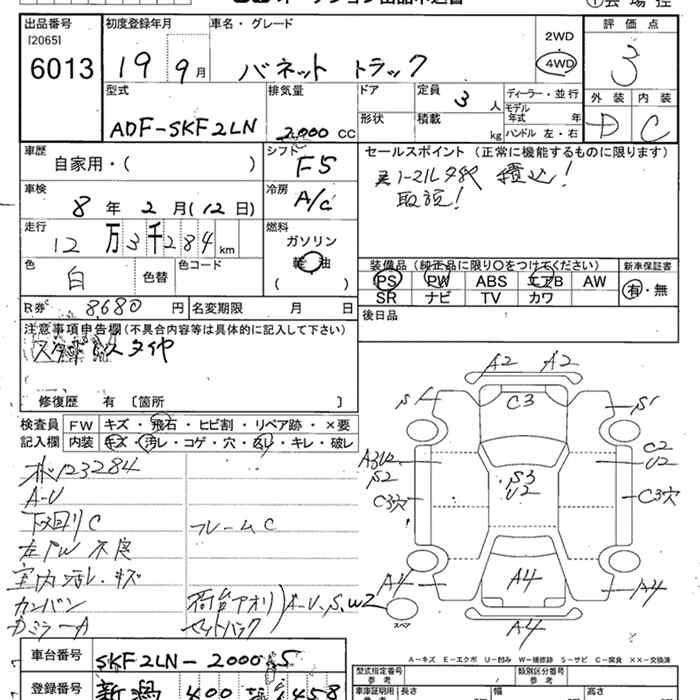 出品番号
[2065]
6013
初度登録年月
19 9月
車名・グレード
バネット トラック
2WD
4WD
評価点
3
外装 内装
D C
型式
ADF-SKF2LN
排気量
2000 CC
ドア
形状
定員 3 人
積載 kg
ディーラー・並行
モデル年式 年
ハンドル 左・右
車歴
自家用・( )
シフト
F5
セールスポイント(正常に機能するものに限ります)
積込!
取説!
車検
8年 2月(12日)
冷房
A/C
走行
12万3千284km
燃料
ガソリン
軽油
( )
色
白
色替
色コード
装備品(純正品に限り○をつけてください)
PS PW ABS エアB AW
SR ナビ TV カワ
新車保証書
有・無
R券 8680円
名変期限 月 日
後日品
注意事項申告欄(不具合内容等は具体的に記入して下さい)
スタッドレスタイヤ
修復歴 有 〔箇所 〕
検査員 記入欄
FW キズ・飛石・ヒビ割・リペア跡・×要
内装 キズ・汚レ・コゲ・穴・スレ・キレ・破レ
123284
A-U
下回りC
フレームC
左PW不良
室内汚レ・キズ
カンバン
荷台アオリ
A-U、S、W2
A2 A2
C3
S1 S1
S2
C2
U2
C3穴
S3
U2
C3穴
A4 A4 A4
スペア
A4
A-キズ E-エクボ U-凹み W-補修跡 S-サビ C-腐食 ××-交換済
車台番号
SKF2LN-2000
型式指定番号 参考
類別区分番号 参考
登録番号
新潟 400 458
車庫証明用
長さ
幅
高さ